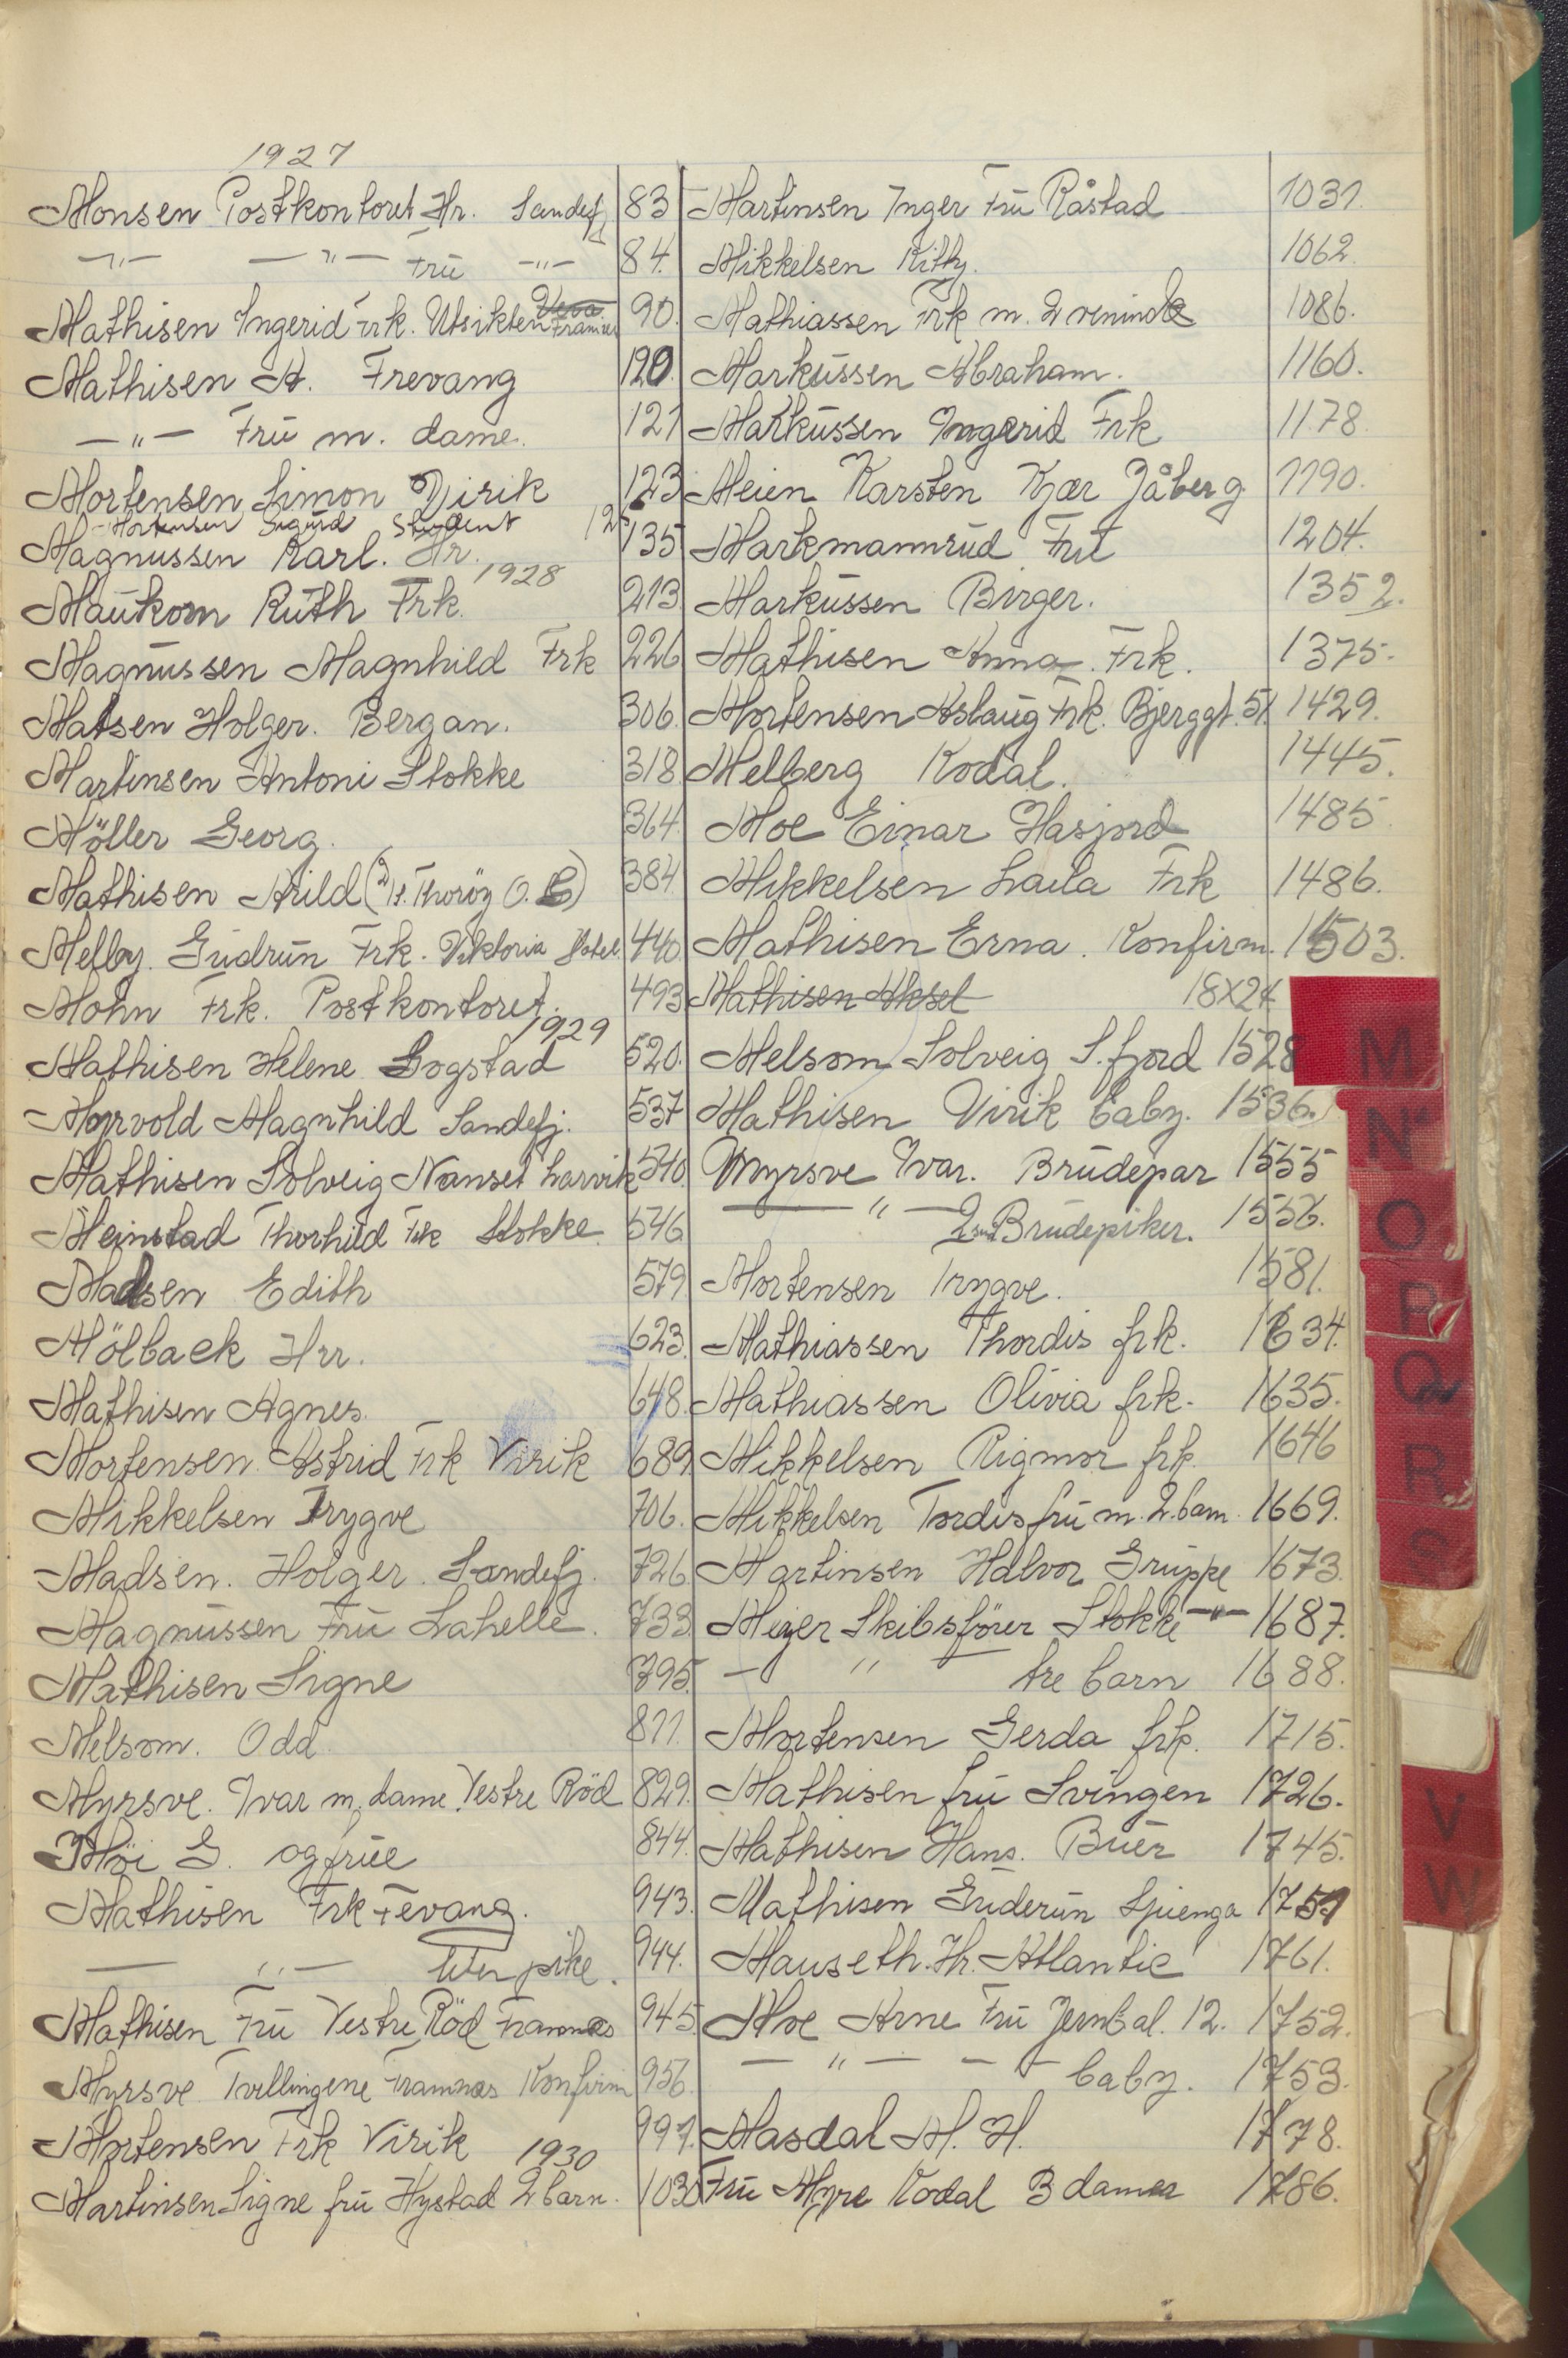 1927
Monsen Postkontoret Hr. Sandefj 83
-"- -"- Frü -"- 84.
Mathisen Ingerid Frk. Utsikten Framnes 90.
Mathisen A. Frevang 120.
-"- Frü m. dame. 121
Mortensen Simon Virik 123
Mortensen Sigurd Student 125
Magnussen Karl. Hr. 135
1928
Maükorn Rüth Frk. 213
Magnüssen Magnhild Frk 226
Matsen Holger. Bergan. 306.
Martinsen Antoni Stokke 318
Möller Georg. 364.
Mathisen Arild (2/. Thoröy O. ) 384
Melby. Güdrün Frk. Viktoria Hotel. 440.
Mohn Frk. Postkontoret. 493
1929
Mathisen Helene Gogstad 520.
Myrvold Magnhild Sandefj. 537
Mathisen Solveig Nanset Larvik 540.
Meinstad Thorhild Frk Stokke. 546
Madsen Edith 579
Mölback Hrr. 623.
Mathisen Agnes. 648.
Mortensen Astrid Frk Virik 689.
Mikkelsen Trygve 706.
Madsen. Holger. Sandefj. 726.
Magnüssen Frü Lahelle. 733.
Mathisen Signe 795.
Melsom. Odd 811.
Myrsve. Ivar m, dame. Vestre Röd 829.
Möi G. og früe 844.
Mathisen Frk Fevang. 943.
— "— liten pike. 944.
Mathisen Frü Vestre Röd Framnæs 945
Myrsve Tvillingene Framnæs Konfirm 956.
Mortensen Frk Virik 997.
1930
Martinsen Signe frü Hystad 2 barn. 1030
Martinsen Inger Frü Råstad 1031.
Mikkelsen Kitty. 1062.
Mathiassen Frk m. 2 venind 1086.
Marküssen Abraham. 1160.
Marküssen Ingerid Frk 1178.
Meien Karsten Kjær Jåberg 1190.
Markmannrüd Frü 1204.
Marküssen Birger. 1352.
Mathisen Anna. Frk. 1375.
Mortensen Aslaüg Frk. Bjerggt. 51 1429.
Melberg Kodal. 1445.
Moe Einar Hasjord 1485.
Mikkelsen Laila Frk 1486.
Mathisen Erna. Konfirm. 1503.
Mathisen Aksel 18X24
Melsom Solveig S.fjord 1528
Mathisen Virik baby. 1536.
Myrsve Ivar. Brüdepar 1555
— " — 2 Brüdepiker. 1556.
Mortensen Trygve. 1581.
Mathiassen Thordis frk. 1634.
Mathiassen Olivia frk. 1635.
Mikkelsen Rigmor frk. 1646
Mikkelsen Tordis frü m. 2. barn. 1669.
Martinsen Halvor Grüppe 1673.
Meyer Skibsförer Stokke -"- 1687.
— " tre barn 1688.
Mortensen Gerda frk. 1715.
Mathisen frü Svingen 1726.
Mathisen Hans. Büer 1745.
Mathisen Güderün Ljuenga 1751
Mauseth. Hr. Atlantic 1761.
Moe Arne Frü Jernbal. 12. 1752.
— " — — — baby. 1753.
Masdal M. H. 1778.
Frü Myre Kodal 3 damer 1786.
M
N
O
P
Q
R
S
V
W